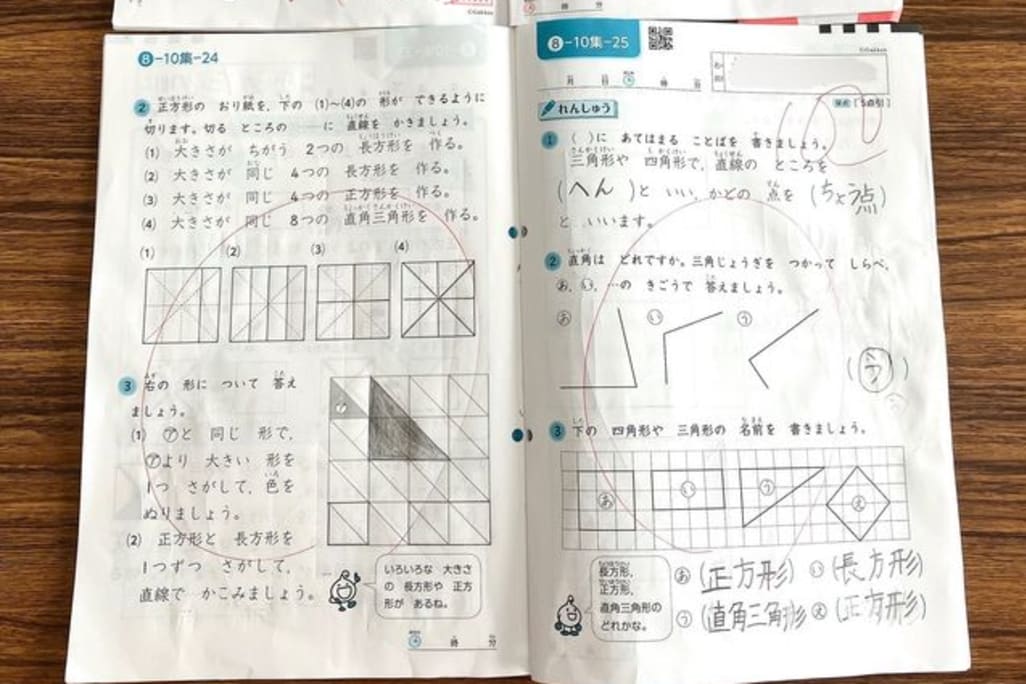 ©Gakken
時 分
8-10集-24
2 正方形の おり紙を、下の (1)~(4)の 形が できるように
切ります。切る ところの に 直線を かきましょう。
(1) 大きさが ちがう 2つの 長方形を 作る。
(2) 大きさが 同じ 4つの 長方形を 作る。
(3) 大きさが 同じ 4つの 正方形を 作る。
(4) 大きさが 同じ 8つの 直角三角形を 作る。
(1) (2) (3) (4)
3 右の 形に ついて 答え
ましょう。
(1) ㋐と 同じ 形で、
㋐より 大きい 形を
1つ さがして、色を
ぬりましょう。
(2) 正方形と 長方形を
1つずつ さがして、
直線で かこみましょう。
いろいろな 大きさ
の 長方形や 正方
形が あるね。
時 分
8-10集-25
©Gakken
月 日 時 分
[5点引]
れんしゅう
1 ( )に あてはまる ことばを 書きましょう。
三角形や 四角形で、直線の ところを
(へん)と いい、かどの 点を (ちょう点)
と いいます。
2 直角は どれですか。三角じょうぎを つかって しらべ、
あ、い、…の きごうで 答えましょう。
あ い う
(う)
3 下の 四角形や 三角形の 名前を 書きましょう。
あ い う え
長方形、
正方形、
直角三角形の
どれかな。
あ (正方形) い (長方形)
う (直角三角形) え (正方形)